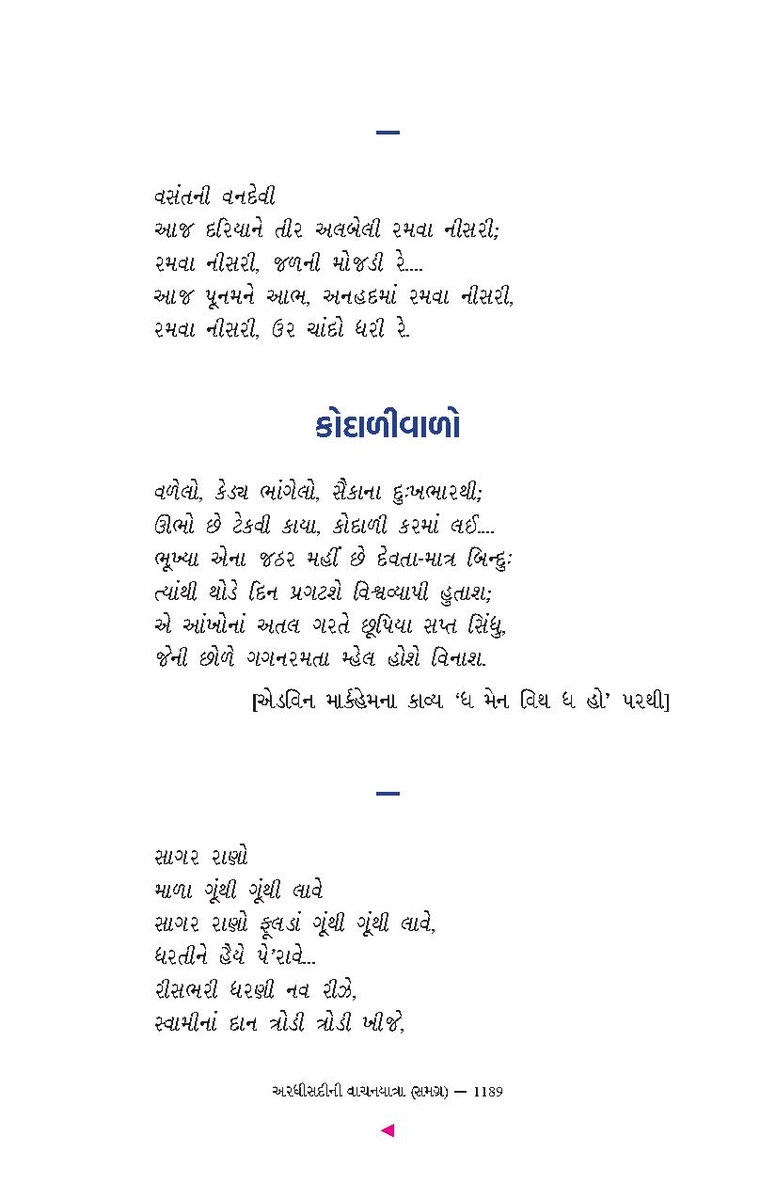 —
વસંતની વનદેવી
આજ દરિયાને તીર અલબેલી રમવા નીસરી;
રમવા નીસરી, જળની મોજડી રે....
આજ પૂનમને આભ, અનહદમાં રમવા નીસરી,
રમવા નીસરી, ઉર ચાંદો ધરી રે.
કોદાળીવાળો
વળેલો, કેડ્ય ભાંગેલો, સૈકાના દુઃખભારથી;
ઊભો છે ટેકવી કાયા, કોદાળી કરમાં લઈ....
ભૂખ્યા એના જઠર મહીં છે દેવતા-માત્ર બિન્દુઃ
ત્યાંથી થોડે દિન પ્રગટશે વિશ્વવ્યાપી હુતાશ;
એ આંખોનાં અતલ ગરતે છૂપિયા સપ્ત સિંધુ,
જેની છોળે ગગનરમતા મ્હેલ હોશે વિનાશ.
[એડવિન માર્ક્હેમના કાવ્ય ‘ધ મેન વિથ ધ હો’ પરથી]
—
સાગર રાણો
માળા ગૂંથી ગૂંથી લાવે
સાગર રાણો ફૂલડાં ગૂંથી ગૂંથી લાવે,
ધરતીને હૈયે પે’રાવે...
રીસભરી ધરણી નવ રીઝે,
સ્વામીનાં દાન ત્રોડી ત્રોડી ખીજે,
અરધીસદીની વાચનયાત્રા (સમગ્ર) — 1189